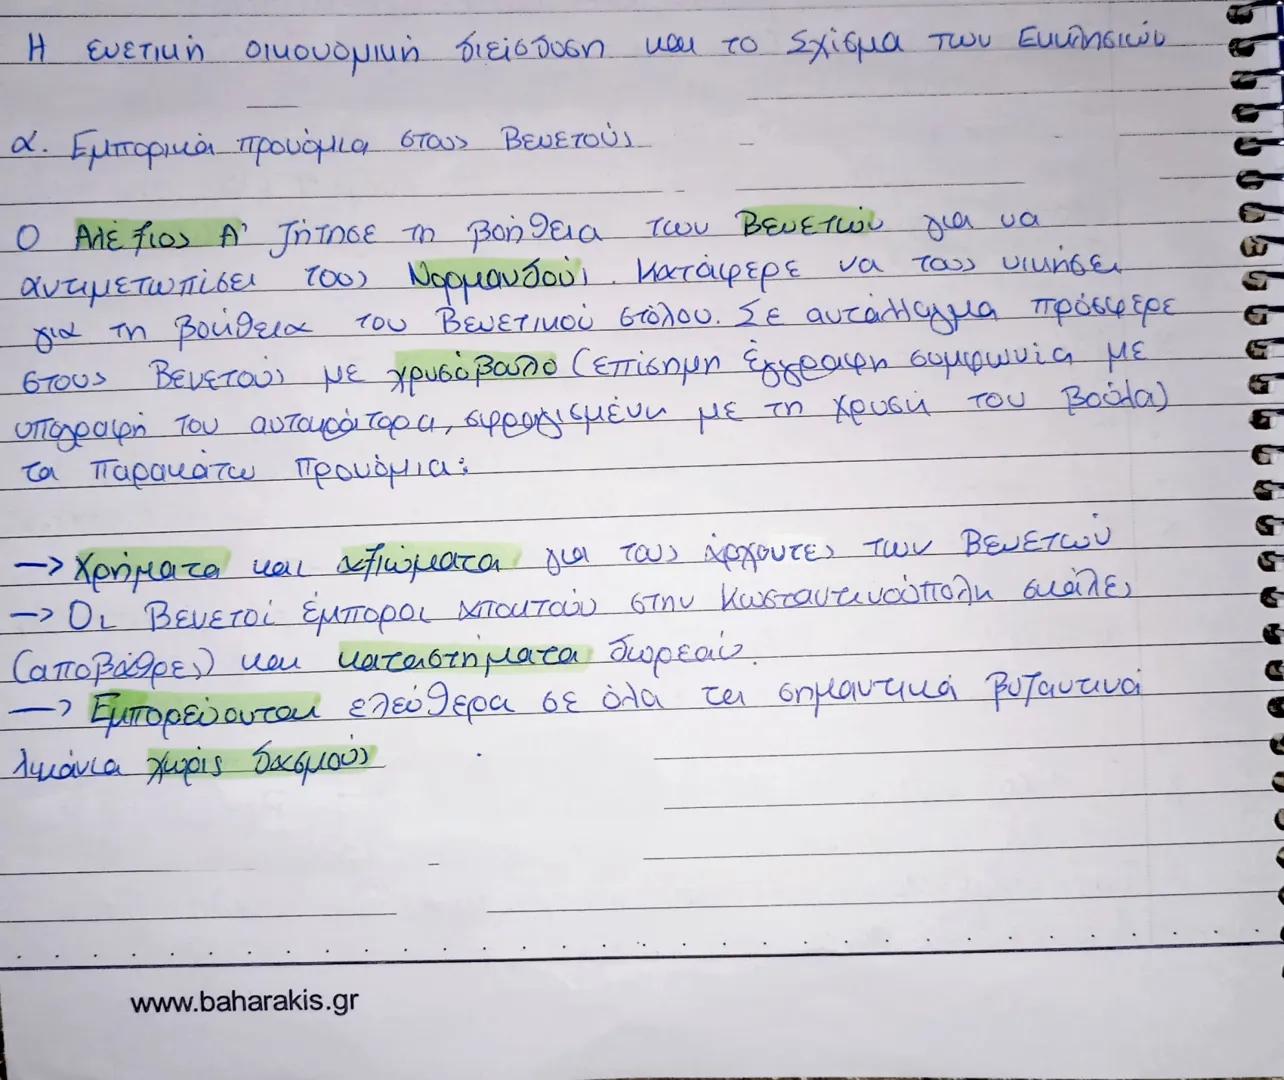 Η ενετική οικονομική διείσδυση και το Σχίσμα των Εκκλησιών
α. Εμπορικά προνόμια στους Βενετούς
Ο Αλέξιος Α' ζήτησε τη βοήθεια των Βενετών για να
αντιμετωπίσει τους Νορμανδούς. Κατάφερε να τους νικήσει
για τη βοήθεια του Βενετικού στόλου. Σε αντάλλαγμα πρόσφερε
στους Βενετούς με χρυσόβουλο (επίσημη έγγραφη συμφωνία με
υπογραφή του αυτοκράτορα, σφραγισμένη με τη χρυσή του βούλα)
τα παρακάτω προνόμια:
→ Χρήματα και αξιώματα για τους άρχοντες των Βενετών
→ Οι Βενετοί έμποροι αποκτούν στην Κωσταντινούπολη σκάλες
(αποβάθρες) και καταστήματα δωρεάν.
→ Εμπορεύονται ελεύθερα σε όλα τα σημαντικά βυζαντινά
λιμάνια χωρίς δασμούς
www.baharakis.gr